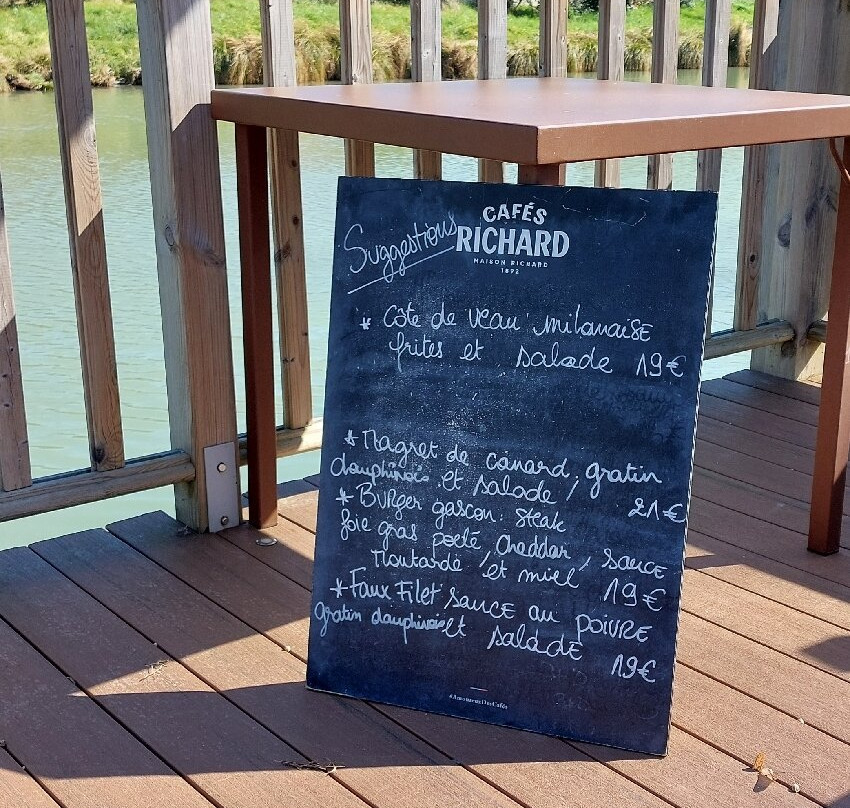 CAFÉS
RICHARD
MAISON RICHARD
1892
Suggestions
* Côte de veau milanaise
frites et salade 19€
* Magret de canard, gratin
dauphinois et salade / 21€
* Burger gascon: steak
foie gras poelé, cheddar, sauce
Moutarde et miel 19€
* Faux Filet sauce au poivre
gratin dauphinois et salade
19€
#AmoureuxDesCafés